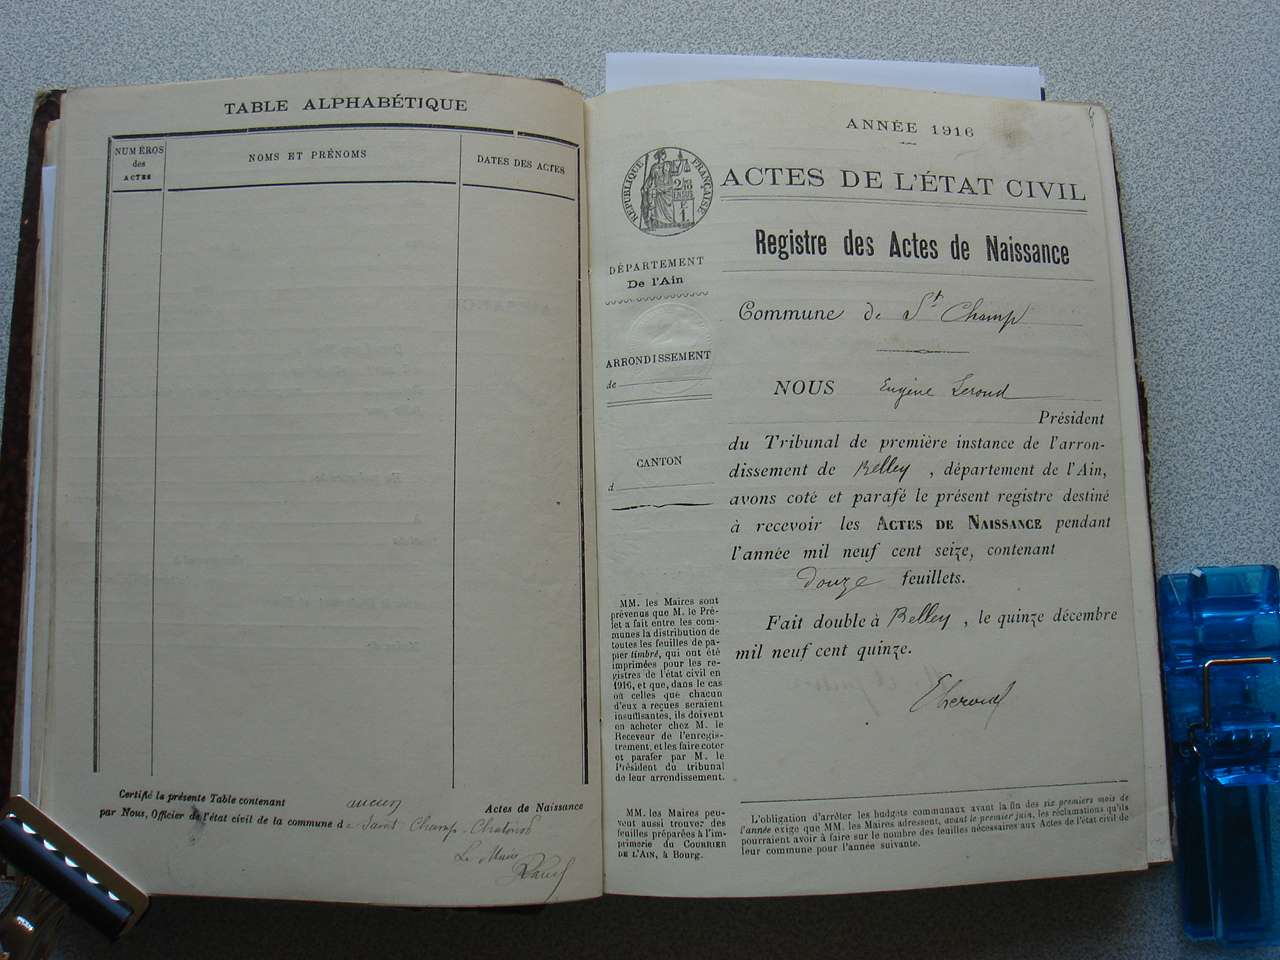 TABLE ALPHABÉTIQUE
NUMÉROS
des
ACTES
NOMS ET PRÉNOMS
DATES DES ACTES
Certifié la présente Table contenant aucun Actes de Naissance
par Nous, Officier de l'état civil de la commune de Saint Champ-Chatonod
Le Maire
ANNÉE 1916
RÉPUBLIQUE FRANÇAISE
ACTES DE L'ÉTAT CIVIL
Registre des Actes de Naissance
DÉPARTEMENT
De l'Ain
ARRONDISSEMENT
de
CANTON
d
Commune de St Champ
NOUS Eugène Leroud
Président
du Tribunal de première instance de l'arron-
dissement de Belley, département de l'Ain,
avons coté et parafé le présent registre destiné
à recevoir les ACTES DE NAISSANCE pendant
l'année mil neuf cent seize, contenant
douze feuillets.
Fait double à Belley, le quinze décembre
mil neuf cent quinze.
ELeroud
MM. les Maires sont
prévenus que M. le Pré-
fet a fait entre les com-
munes la distribution de
toutes les feuilles de pa-
pier timbré, qui ont été
imprimées pour les re-
gistres de l'état civil en
1916, et que, dans le cas
où celles que chacun
d'eux a reçues seraient
insuffisantes, ils doivent
en acheter chez M. le
Receveur de l'enregis-
trement, et les faire coter
et parafer par M. le
Président du tribunal
de leur arrondissement.
MM. les Maires peu-
vent aussi trouver des
feuilles préparées à l'im-
primerie du COURRIER
DE L'AIN, à Bourg.
L'obligation d'arrêter les budgets communaux avant la fin des six premiers mois de
l'année exige que MM. les Maires adressent, avant le premier juin, les réclamations qu'ils
pourraient avoir à faire sur le nombre des feuilles nécessaires aux Actes de l'état civil de
leur commune pour l'année suivante.